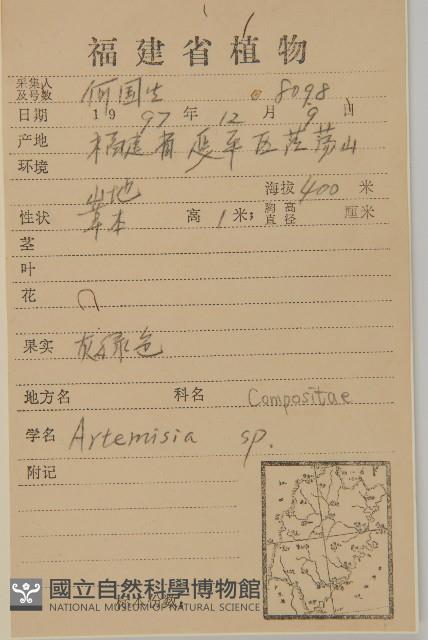 福建省植物
采集人及号数 何国生 8098
日期 1997年12月9日
产地 福建省延平区茫荡山
环境
山地 海拔 400 米
性状 草本 高 1 米; 胸高直径 厘米
茎
叶
花
果实 灰绿色
地方名 科名 Compositae
学名 Artemisia sp.
附记
國立自然科學博物館
NATIONAL MUSEUM OF NATURAL SCIENCE